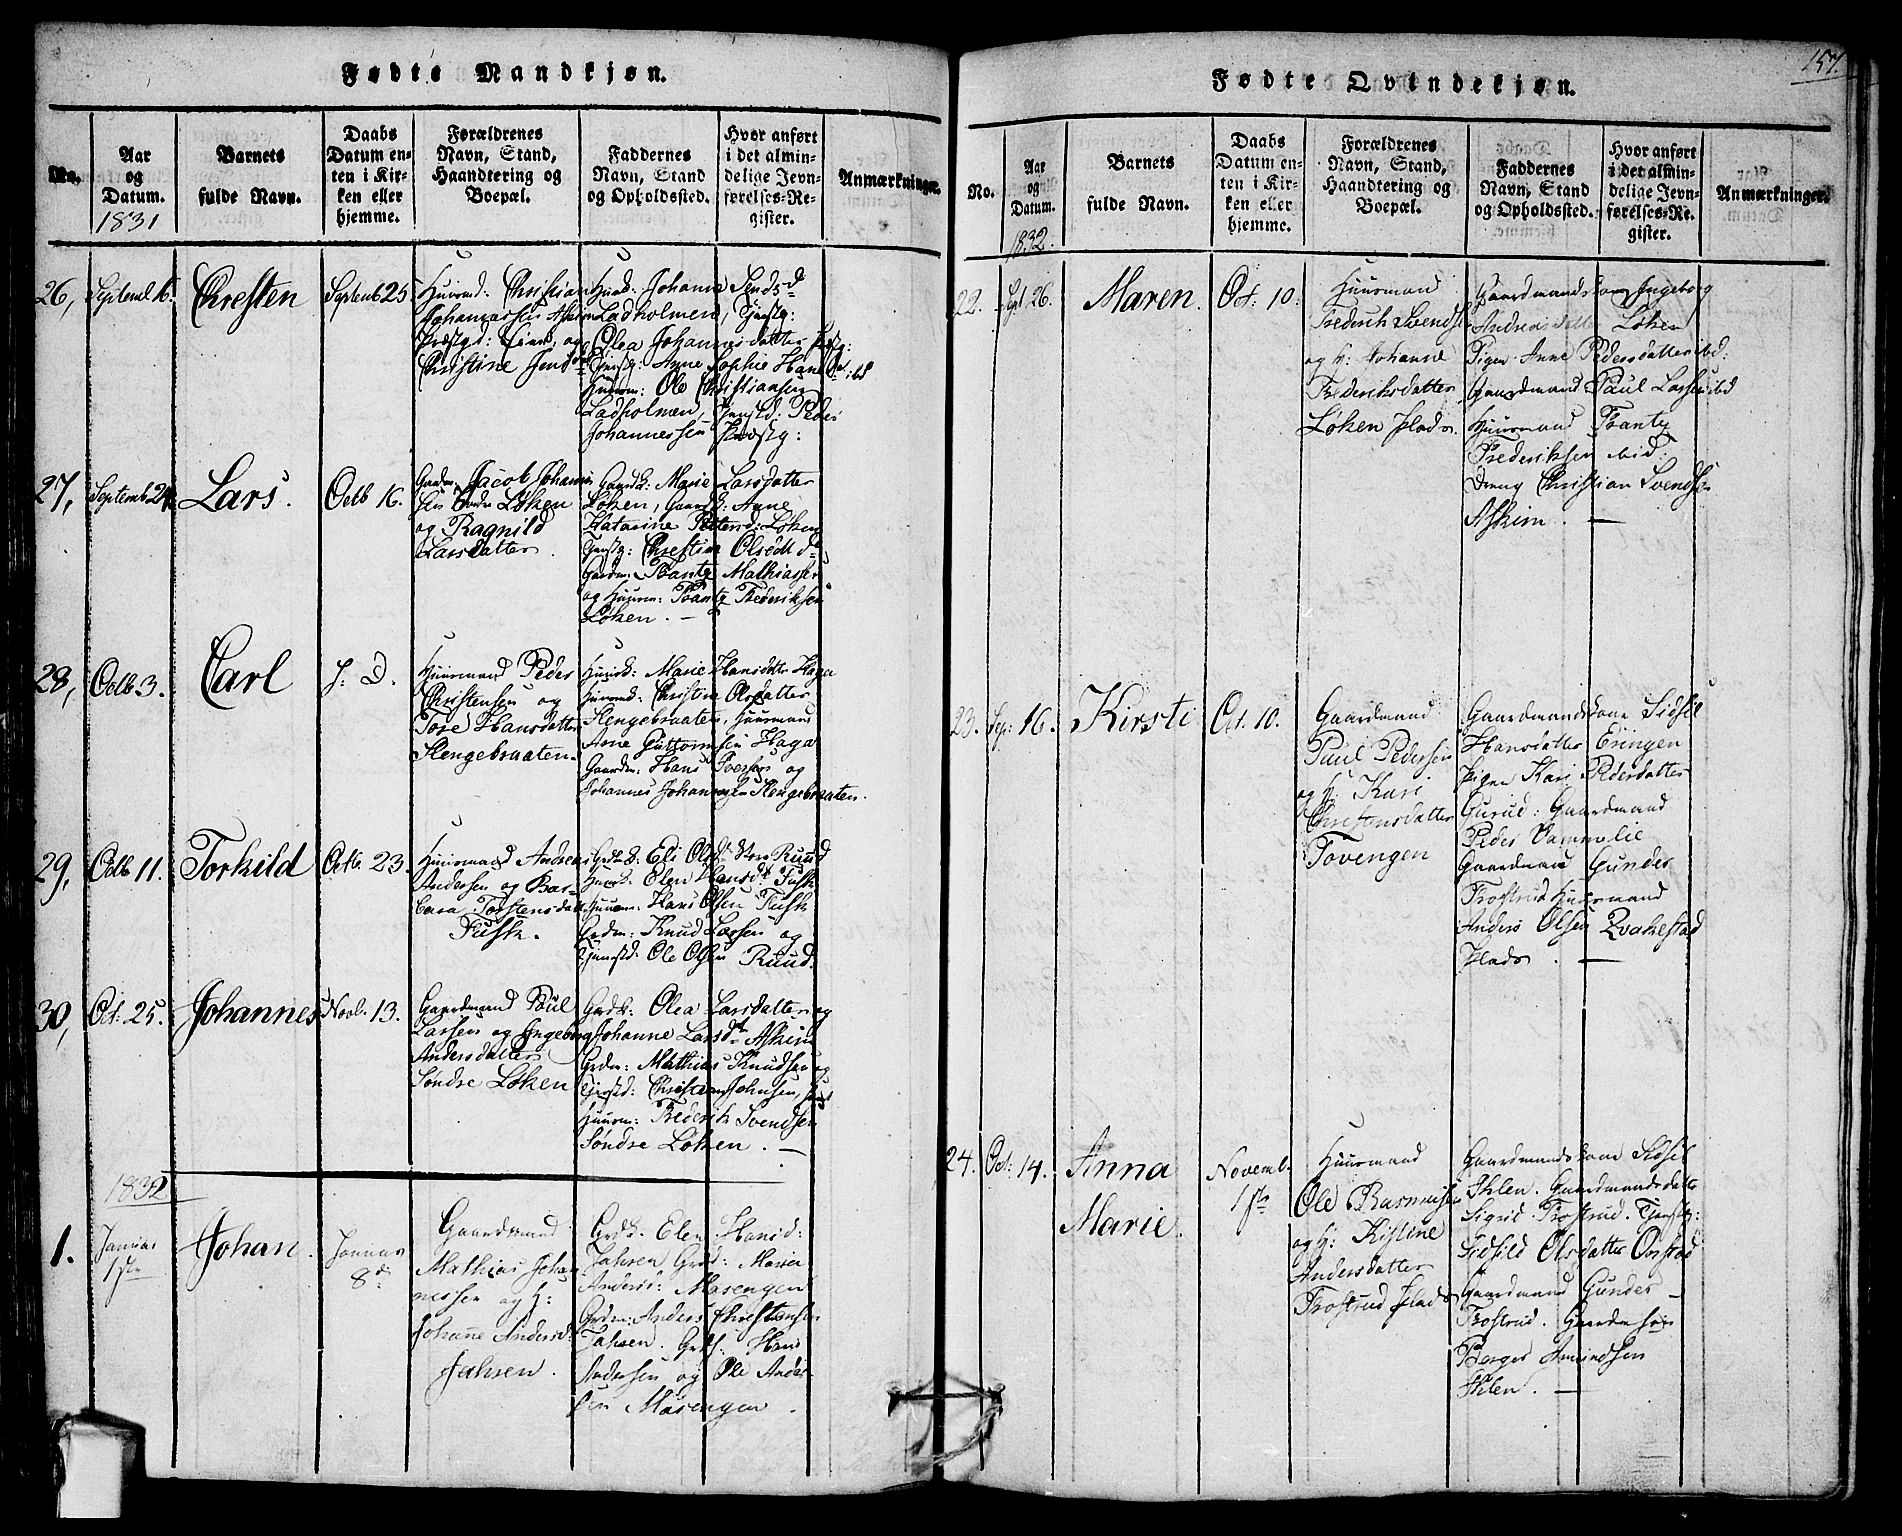 Fødte Mandkjøn.
No.
Aar
og
Datum.
1831
Barnets
fulde Navn.
Daabs
Datum en-
ten i Kir-
ken eller
hjemme.
Forældrenes
Navn, Stand,
Haandtering og
Boepæl.
Faddernes
Navn, Stand
og Opholdssted.
Hvor anført
i det almin-
delige Jevn-
førelses-Re-
gister.
Anmærkninger.
26, Septemb 6. Chresten Septemb 25
Huusmd: Christian
Johannessen Askim
Præstgd: Eiend, og
Christine Jensd
Huusk: Johanne Jensd
Ladholmen, Tjenstg:
Olea Johannesdatter Præstg:
Tjenstg: Anne Sophie Hansd ibd
Huusm: Ole Christiansen
Ladholmen, Tjenstd: Peder
Johannessen Præstg:
27, Septemb 24 Lars. Octb 16.
Gaardm: Jacob Johannes
sen Søndre Løken
og Ragnild
Larsdatter.
Gaardk: Marie Larsdatter
Løken, Gaardk: Anne
Katarine Pettersd: Løken
Tjenstg: Christine Olsedt
Gaardm: Frantz Mathiassen
og Huusm: Frantz Frederiksen
Løken. —
28, Octb 3. Carl J: D.
Huusmand Peder
Christensen og
Tore Hansdatter
Slengebraaten.
Huusk: Marie Hansdatter Haga
Huusk: Christine Olsdatter
Slengebraaten, Huusmand
Arne Guttormsen Haga
Gaardm: Hans Iversen og
Johannes Johannesen Slengebraaten.
29, Octb 11. Torkild Octb. 23.
Huusmand Andreas
Andersen og Bar-
bara Torstensdatt
Fusk.
Grdk: Eli Olsdt Store Ruud
Huusk: Elen Hansdt Fusk
Huusm: Hans Olsen Fusk
Grdm: Knud Larsen og
Tjenstd: Ole Olsen Ruud.
30, Oct: 25. Johannes Novb. 13.
Gaardmand Poul
Larsen og Ingeborg
Andersdatter
Søndre Løken
Grdk: Olea Larsdatter og
Johanne Larsdt Askim
Grdm: Mathias Knudsen og
Tjenstd: Christian Johnsen,
Huusm: Frederik Svendsen
Søndre Løken. —
1832
1. Januar
1ste
Johan.
Januar
8de
Gaardmand
Mathias Johan
nessen og H:
Johanne Andersd:
Jahsen.
Grdk: Elen Hansd:
Jahsen Grd: Maria
Andersd: Masengen
Grdm: Anders Christensen
Jahsen. Hans
Andersen og Ole Ander-
sen Masengen.
157.
Fødte Qvindekjøn.
No.
Aar
og
Datum.
1832.
Barnets
fulde Navn.
Daabs
Datum en-
ten i Kir-
ken eller
hjemme.
Forældrenes
Navn, Stand,
Haandtering og
Boepæl.
Faddernes
Navn, Stand
og Opholdssted.
Hvor anført
i det almin-
delige Jevn-
førelses-Re-
gister.
Anmærkninger.
22. Sept 26. Maren. Oct: 10:
Huusmand
Frederik Svendsen
og H: Johanne
Frederiksdatter
Løken Plads.
Gaardmandskone Ingeborg
Andreasdatter Løken
Pigen Anne Pedersdatter ibd:
Gaardmand Paul Larsen ibd
Huusmand Frantz
Frederiksen ibid:
Dreng Christian Svendsen
Askim. —
23. Sep: 16. Kirsti Oct. 10.
Gaardmand
Paul Pedersen
og H: Kari
Christensdatter
Tovengen
Gaardmandskone Sidsel
Hansdatter Eringen
Pigen Kari Pedersdatter
Gurud: Gaardmand
Peder Vammelie
Gaardmand Gunder
Trostrud Huusmand
Anders Olsen Qvakestad
Plads. —
24. Oct: 14. Anna
Marie.
Novemb.
1ste
Huusmand
Ole Rasmusen
og H: Kistine
Andersdatter
Trostrud Plads
Gaardmandskone Sidsel
Ihlen. Gaardmandsdatter
Sigrid Trostrud. Tjenstg:
Sidsild Olsdatter Onstad
Gaardmand Gunder —
Trostrud. Gaardmsøn
Berger Amundsen
Ihlen. —